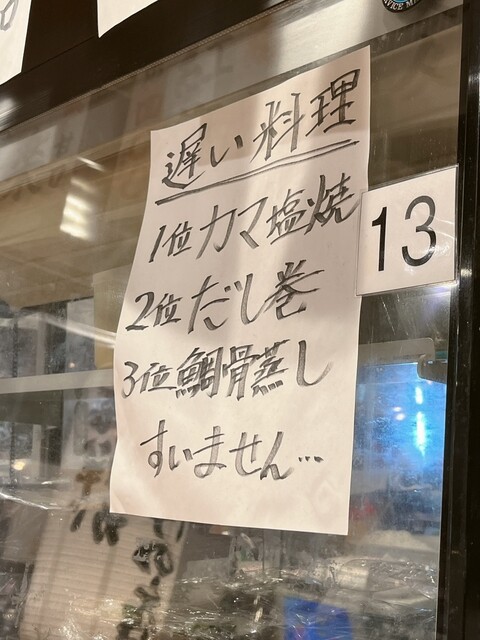 遅い料理
1位カマ塩焼
2位だし巻
3位鯛骨蒸し
すいません…
13